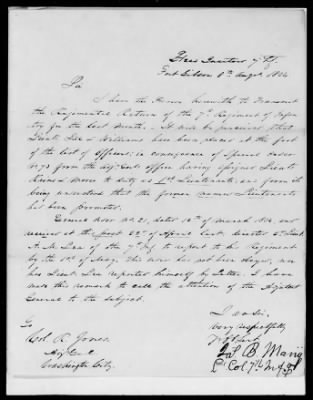 Head Quarters 7 Rg.
Fort Gibson 8th August 1836
Sir
I have the Honor herewith to transmit
the Regimental Return of the 7th Regiment of Infan
try for the last month. - It will be perceived that
Lieut and Williams have been placed at the foot
of the list of Officers, in consequence of Special Order
from the Adj. Genl's office having assigned Lieuts
and Moore to duty as 1st Lieutenants, and from it
being understood that the former Lieutenants
had been promoted.
Order No. 21, dated 12th of March 1836, and
received at this post 22d of April last, directed 2d Lieut
A. M. Lea of the 7th Inf to report to his Regiment
by the of May. This order has not been obeyed, nor
has Lieut Lea reported himself by letter. I have
made this remark to call the attention of the Adjutant
General to the subject.
I am Sir,
Very respectfully,
Yr Obt Servt
To
Col. R. Jones
Adj Genl
Washington City.
Col. 7th Inf